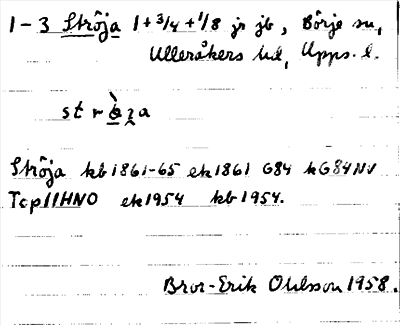 1-3 Ströja 1+3/4+1/8 jr jb, Börje sn,
Ulleråkers hd, Upps. l.
Ströja kb 1861-65 ek 1861 G84 kG84NV
Tcp11HNO ek 1954 kb 1954.
Bror-Erik Ohlsson 1958.